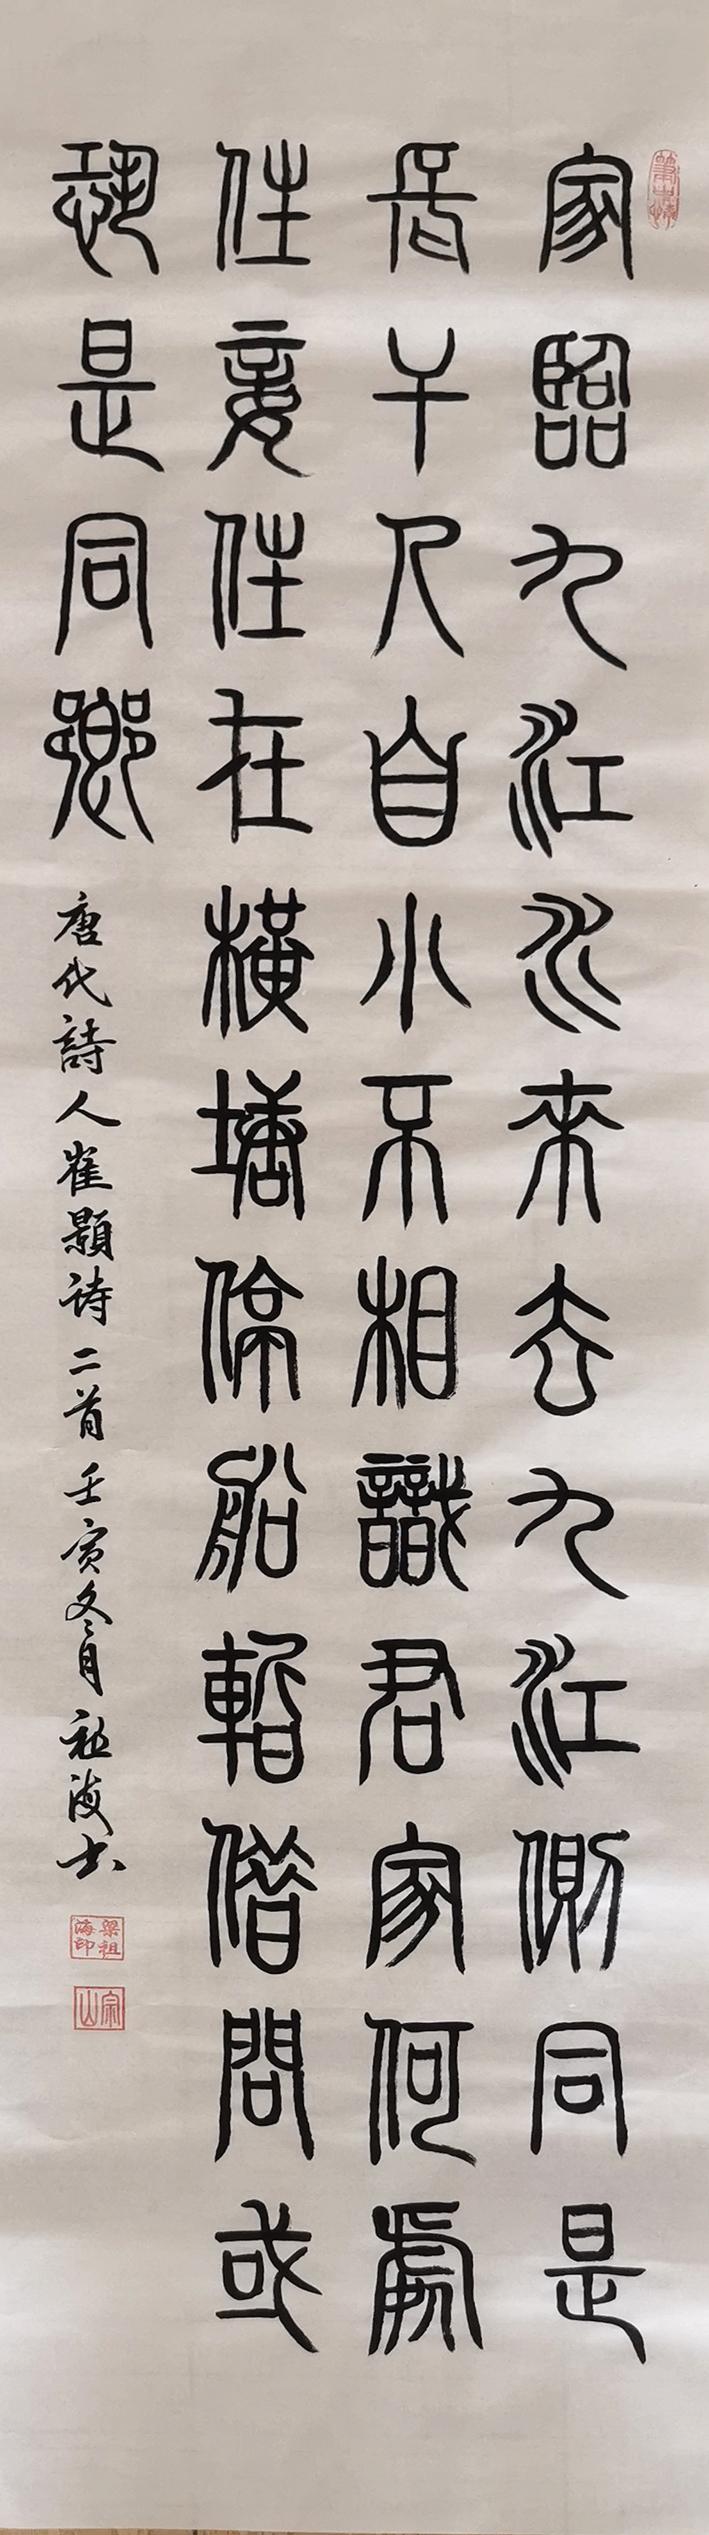 家臨九江水來去九江側同是
長干人自小不相識君家何處
住妾住在橫塘停船暫借問或
恐是同鄉
唐代詩人崔顥詩二首壬寅冬月祖海書
梁祖海印
宗山